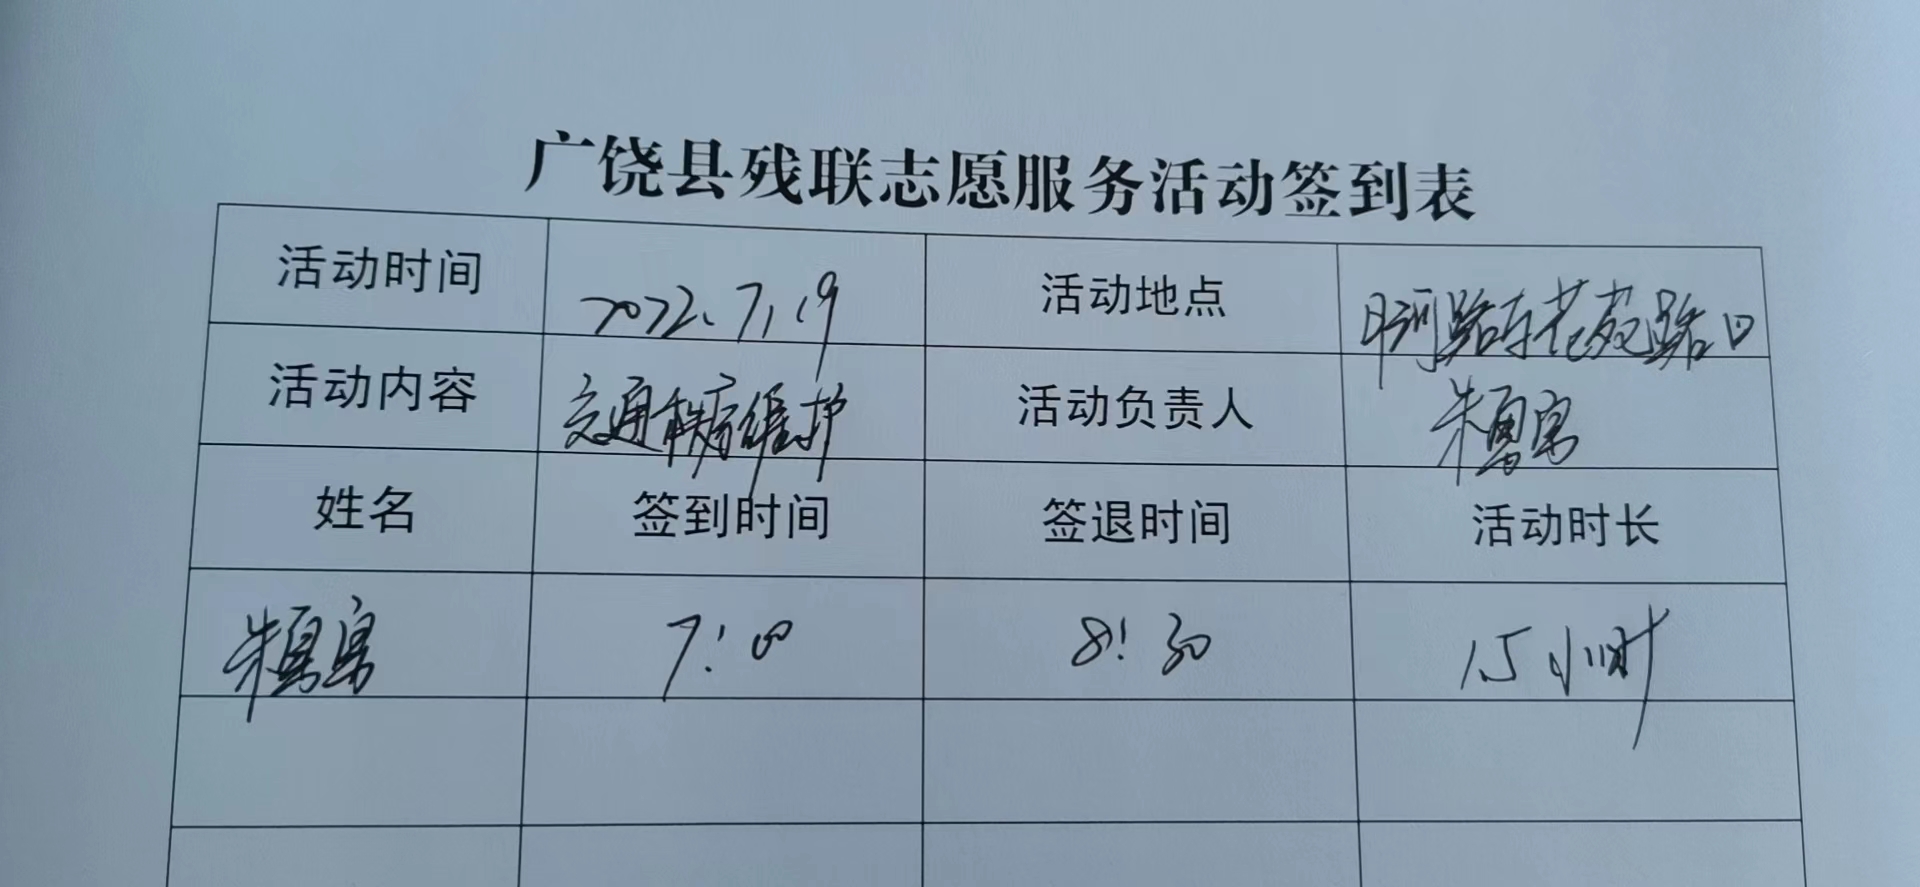 广饶县残联志愿服务活动签到表
活动时间 2022.7.19 活动地点 路东花苑路口
活动内容 交通秩序维护 活动负责人 朱
姓名 签到时间 签退时间 活动时长
朱 7:00 8:30 1.5小时